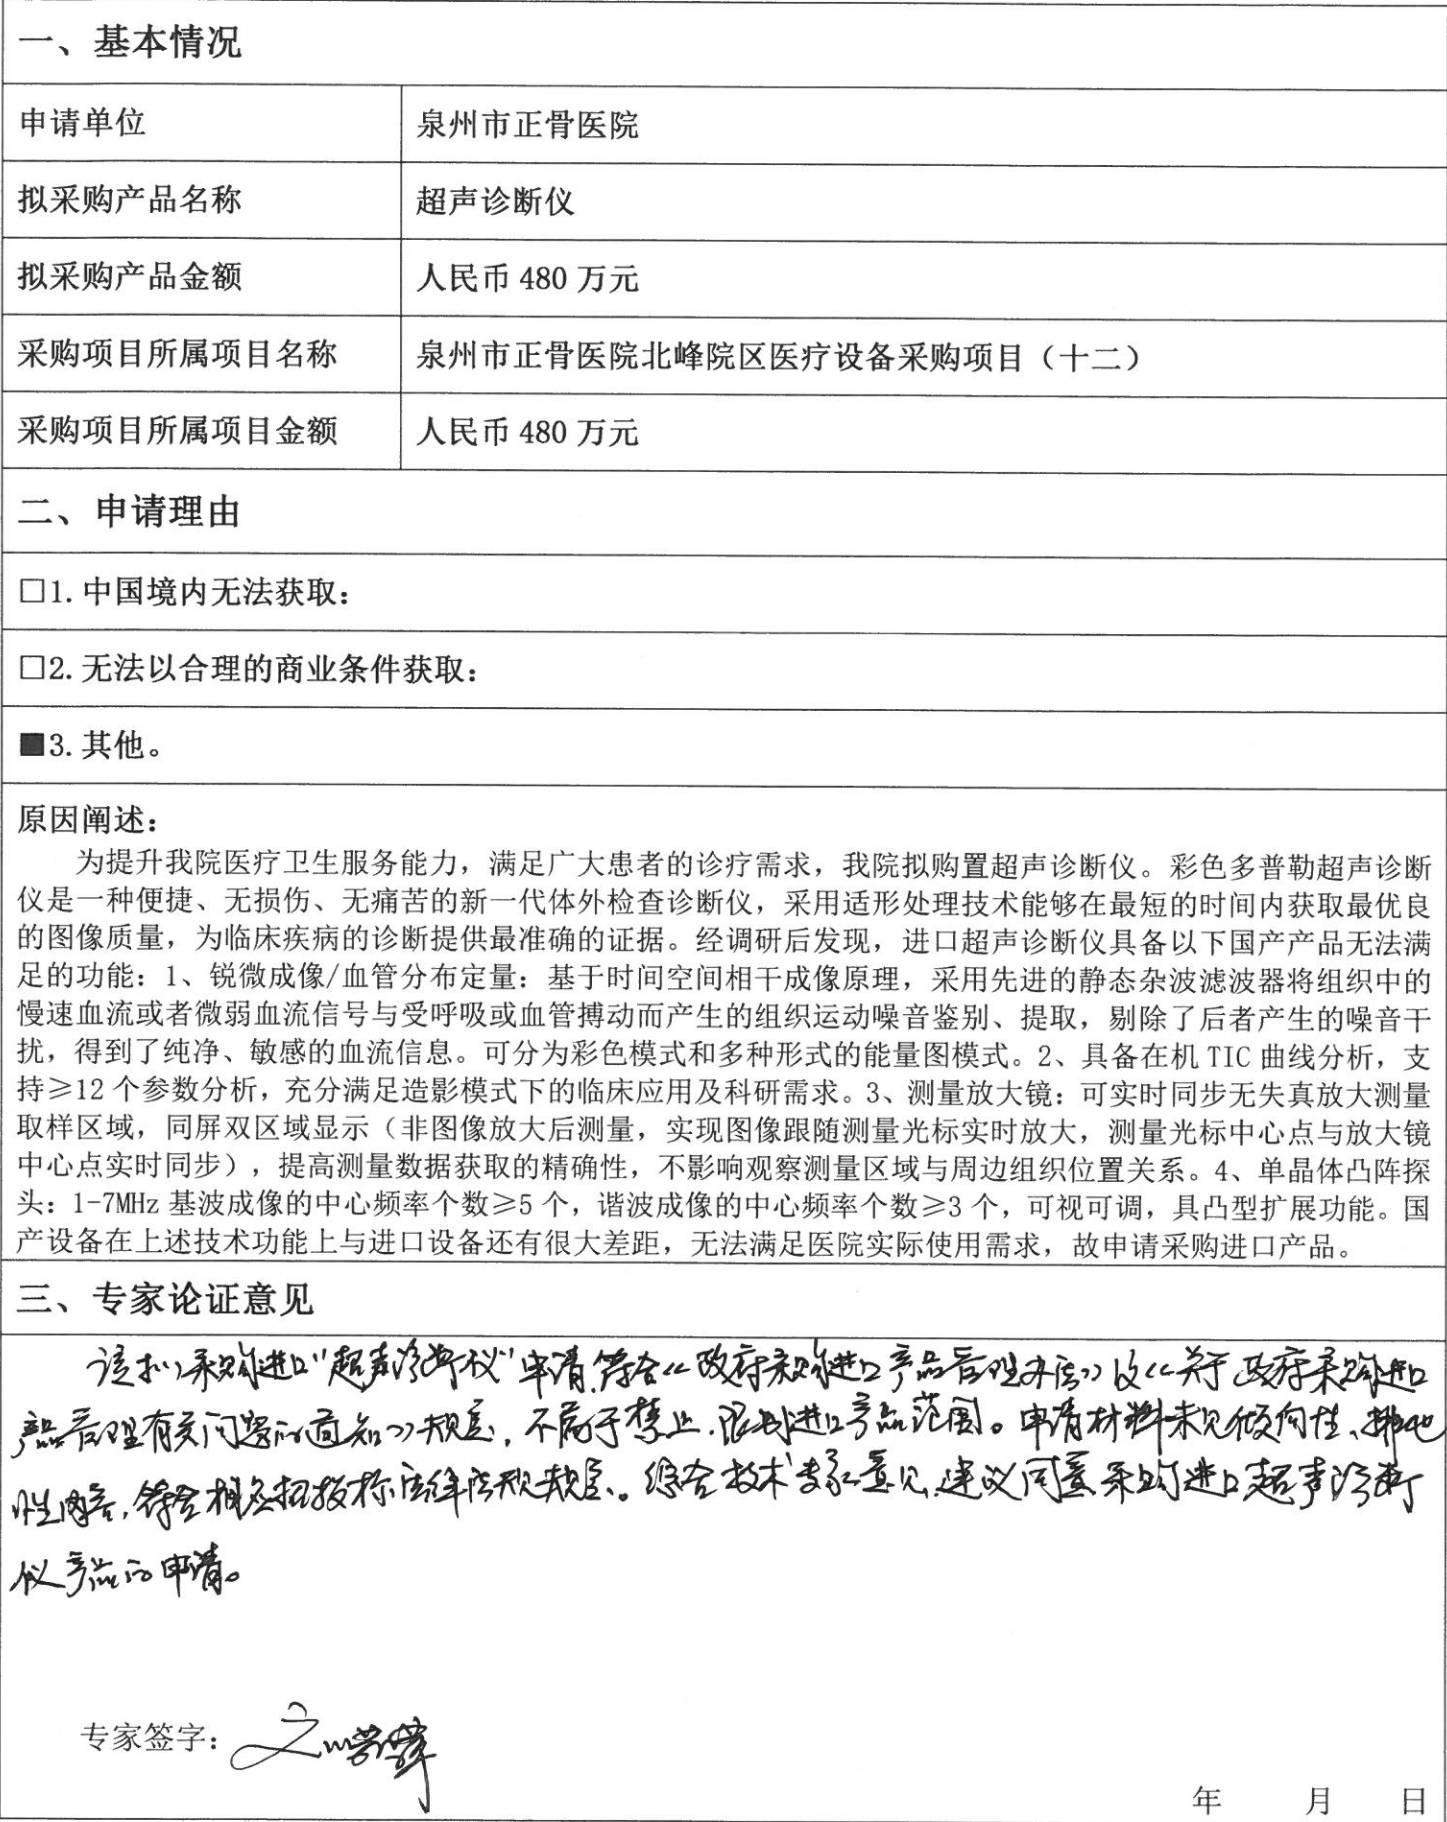 一、基本情况
申请单位 泉州市正骨医院
拟采购产品名称 超声诊断仪
拟采购产品金额 人民币 480 万元
采购项目所属项目名称 泉州市正骨医院北峰院区医疗设备采购项目（十二）
采购项目所属项目金额 人民币 480 万元
二、申请理由
□1.中国境内无法获取：
□2.无法以合理的商业条件获取：
■3.其他。
原因阐述：
为提升我院医疗卫生服务能力，满足广大患者的诊疗需求，我院拟购置超声诊断仪。彩色多普勒超声诊断
仪是一种便捷、无损伤、无痛苦的新一代体外检查诊断仪，采用适形处理技术能够在最短的时间内获取最优良
的图像质量，为临床疾病的诊断提供最准确的证据。经调研后发现，进口超声诊断仪具备以下国产产品无法满
足的功能：1、锐微成像/血管分布定量：基于时间空间相干成像原理，采用先进的静态杂波滤波器将组织中的
慢速血流或者微弱血流信号与受呼吸或血管搏动而产生的组织运动噪音鉴别、提取，剔除了后者产生的噪音干
扰，得到了纯净、敏感的血流信息。可分为彩色模式和多种形式的能量图模式。2、具备在机 TIC 曲线分析，支
持≥12 个参数分析，充分满足造影模式下的临床应用及科研需求。3、测量放大镜：可实时同步无失真放大测量
取样区域，同屏双区域显示（非图像放大后测量，实现图像跟随测量光标实时放大，测量光标中心点与放大镜
中心点实时同步），提高测量数据获取的精确性，不影响观察测量区域与周边组织位置关系。4、单晶体凸阵探
头：1-7MHz 基波成像的中心频率个数≥5 个，谐波成像的中心频率个数≥3 个，可视可调，具凸型扩展功能。国
产设备在上述技术功能上与进口设备还有很大差距，无法满足医院实际使用需求，故申请采购进口产品。
三、专家论证意见
该拟采购进口“超声诊断仪”申请，符合《政府采购进口产品管理办法》及《关于政府采购进口
产品管理有关问题的通知》规定，不属于禁止、限制进口产品范围。申请材料未见倾向性、排他
性内容，符合相关招投标法律法规规定。综合技术专家意见，建议同意采购进口超声诊断
仪产品的申请。
专家签字：
年 月 日